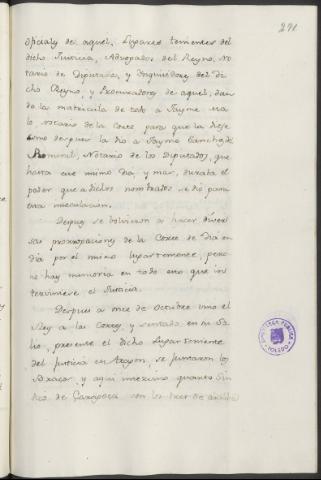 291
oficialy de aquel, Lugares tenientes del
dicho Justicia, Advogados del Reyno, No
tario de Diputados, y Inquisidores del di
cho Reyno, y Procuradores de aquel, dan
do la matricula de todo a Jayme
lo notario de la Corte para que la diese
como despues la dio a Jayme Sanchez del
Romeral, Notario de los Diputados, que
hasta ese mismo dia, y mas, duraba el
poder que a dichos nombrados se dio para
esta insiculacion.
Despues se bolvieron a hacer diver
sas prorrogaciones de la Corte de dia en
dia por el mismo lugarteniente, pero
no hay memoria en todo esto que in
terviniese el Justicia.
Despues a once de Octubre vino el
Rey a la Corte, y sentado en su So
lio, presente el dicho Lugarteniente
del Justicia en Aragon, se juntaron los
Brazos y aqui
de Zaragoza con los
BIBLIOTECA PUBLICA
TOLEDO